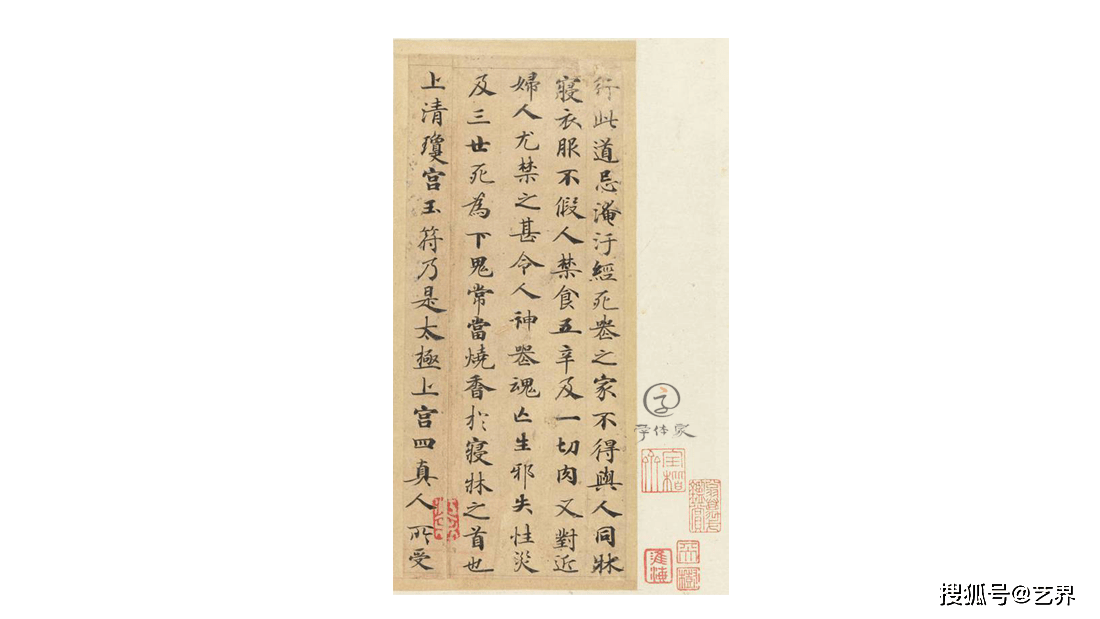 行此道忌淹汙經死喪之家不得與人同牀
寢衣服不假人禁食五辛及一切肉又對近
婦人尤禁之甚令人神喪魂亡生邪失性災
及三世死為下鬼常當燒香於寢牀之首也
上清瓊宮玉符乃是太極上宮四真人所受
字体家
搜狐号@艺界